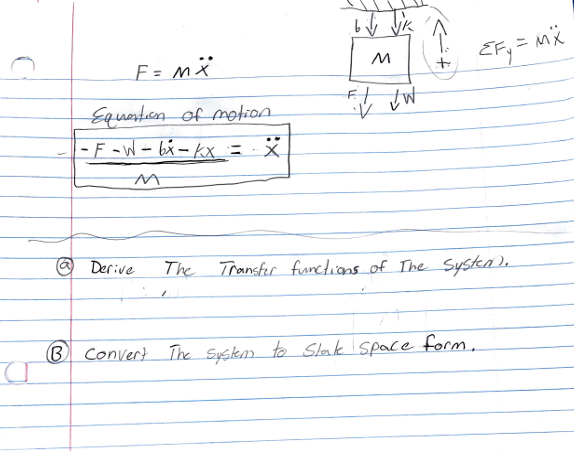 b k
M
+
ΣFy = mẍ
F = mẍ
F W
Equation of motion
-F -W - bẋ - kx = ẍ
M
(a) Derive The Transfer functions of The System.
(B) Convert The System to State Space form.